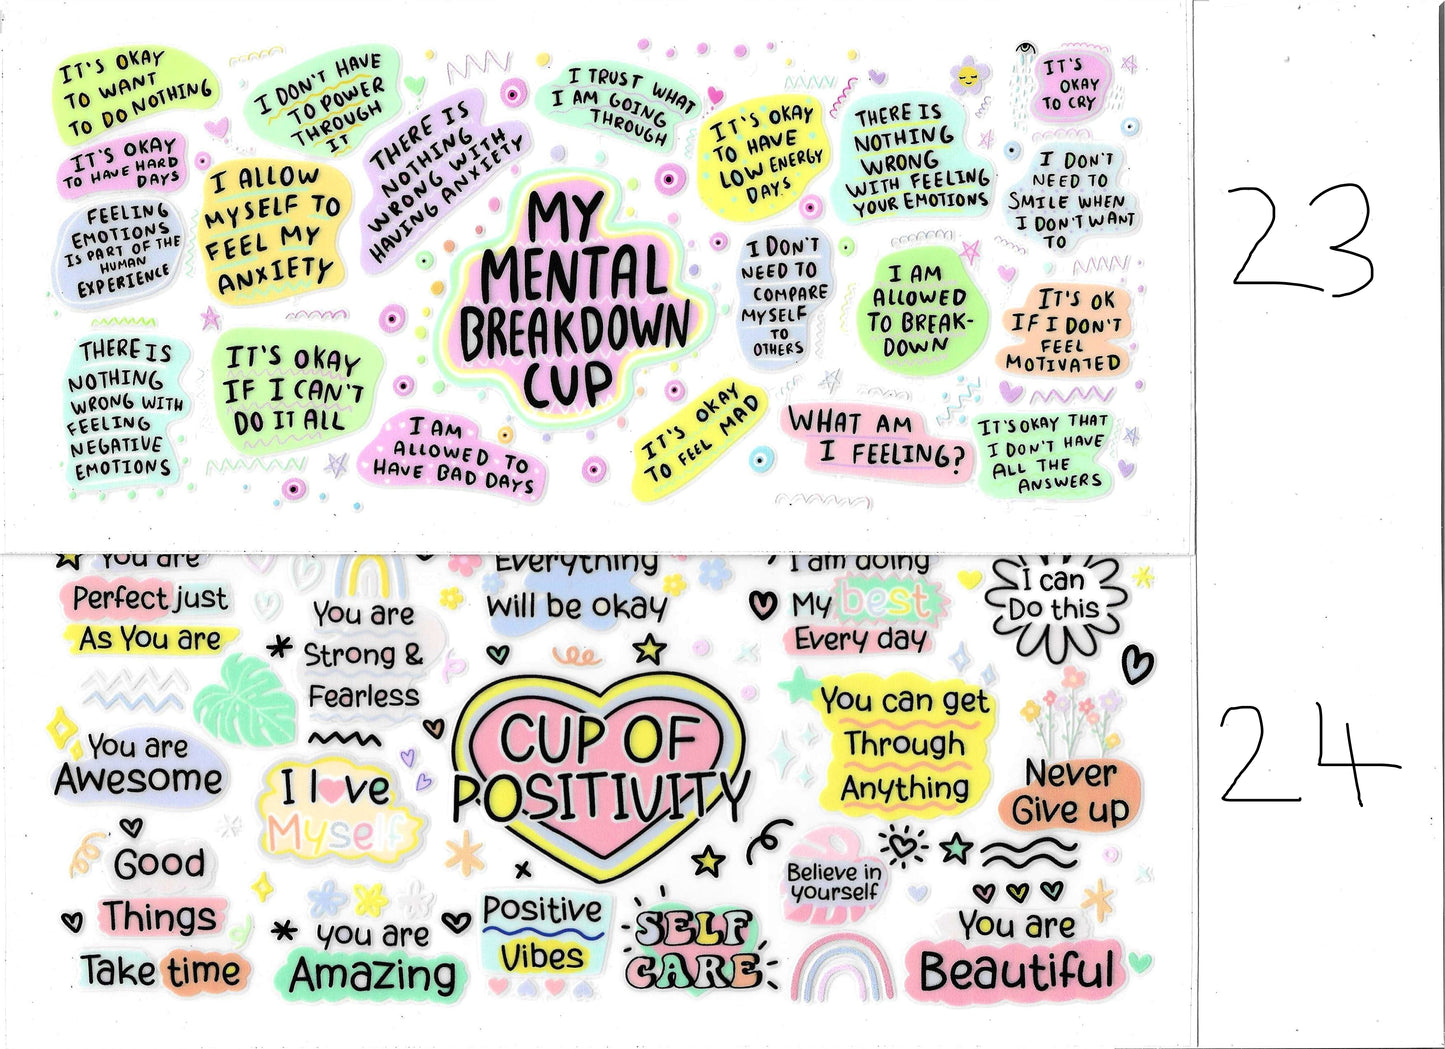 IT'S OKAY
TO WANT
TO DO NOTHING
I DON'T HAVE
TO POWER
THROUGH
IT
THERE IS
NOTHING
WRONG WITH
HAVING ANXIETY
I TRUST WHAT
I AM GOING
THROUGH
IT'S OKAY
TO HAVE
LOW ENERGY
DAYS
THERE IS
NOTHING
WRONG
WITH FEELING
YOUR EMOTIONS
IT'S
OKAY
TO CRY
IT'S OKAY
TO HAVE HARD
DAYS
I ALLOW
MYSELF TO
FEEL MY
ANXIETY
I DON'T
NEED TO
SMILE WHEN
I DON'T WANT
TO
FEELING
EMOTIONS
IS PART OF THE
HUMAN
EXPERIENCE
MY
MENTAL
BREAKDOWN
CUP
I DON'T
NEED TO
COMPARE
MYSELF
TO
OTHERS
I AM
ALLOWED
TO BREAK-
DOWN
IT'S OK
IF I DON'T
FEEL
MOTIVATED
THERE IS
NOTHING
WRONG WITH
FEELING
NEGATIVE
EMOTIONS
IT'S OKAY
IF I CAN'T
DO IT ALL
I AM
ALLOWED TO
HAVE BAD DAYS
IT'S OKAY
TO FEEL MAD
WHAT AM
I FEELING?
IT'S OKAY THAT
I DON'T HAVE
ALL THE
ANSWERS
23
You are
Perfect just
As You are
You are
Strong &
Fearless
Everything
Will be okay
I am doing
My best
Every day
I can
Do this
You are
Awesome
I love
Myself
CUP OF
POSITIVITY
You can get
Through
Anything
Never
Give up
Good
Things
Take time
you are
Amazing
Positive
Vibes
SELF
CARE
Believe in
yourself
You are
Beautiful
24